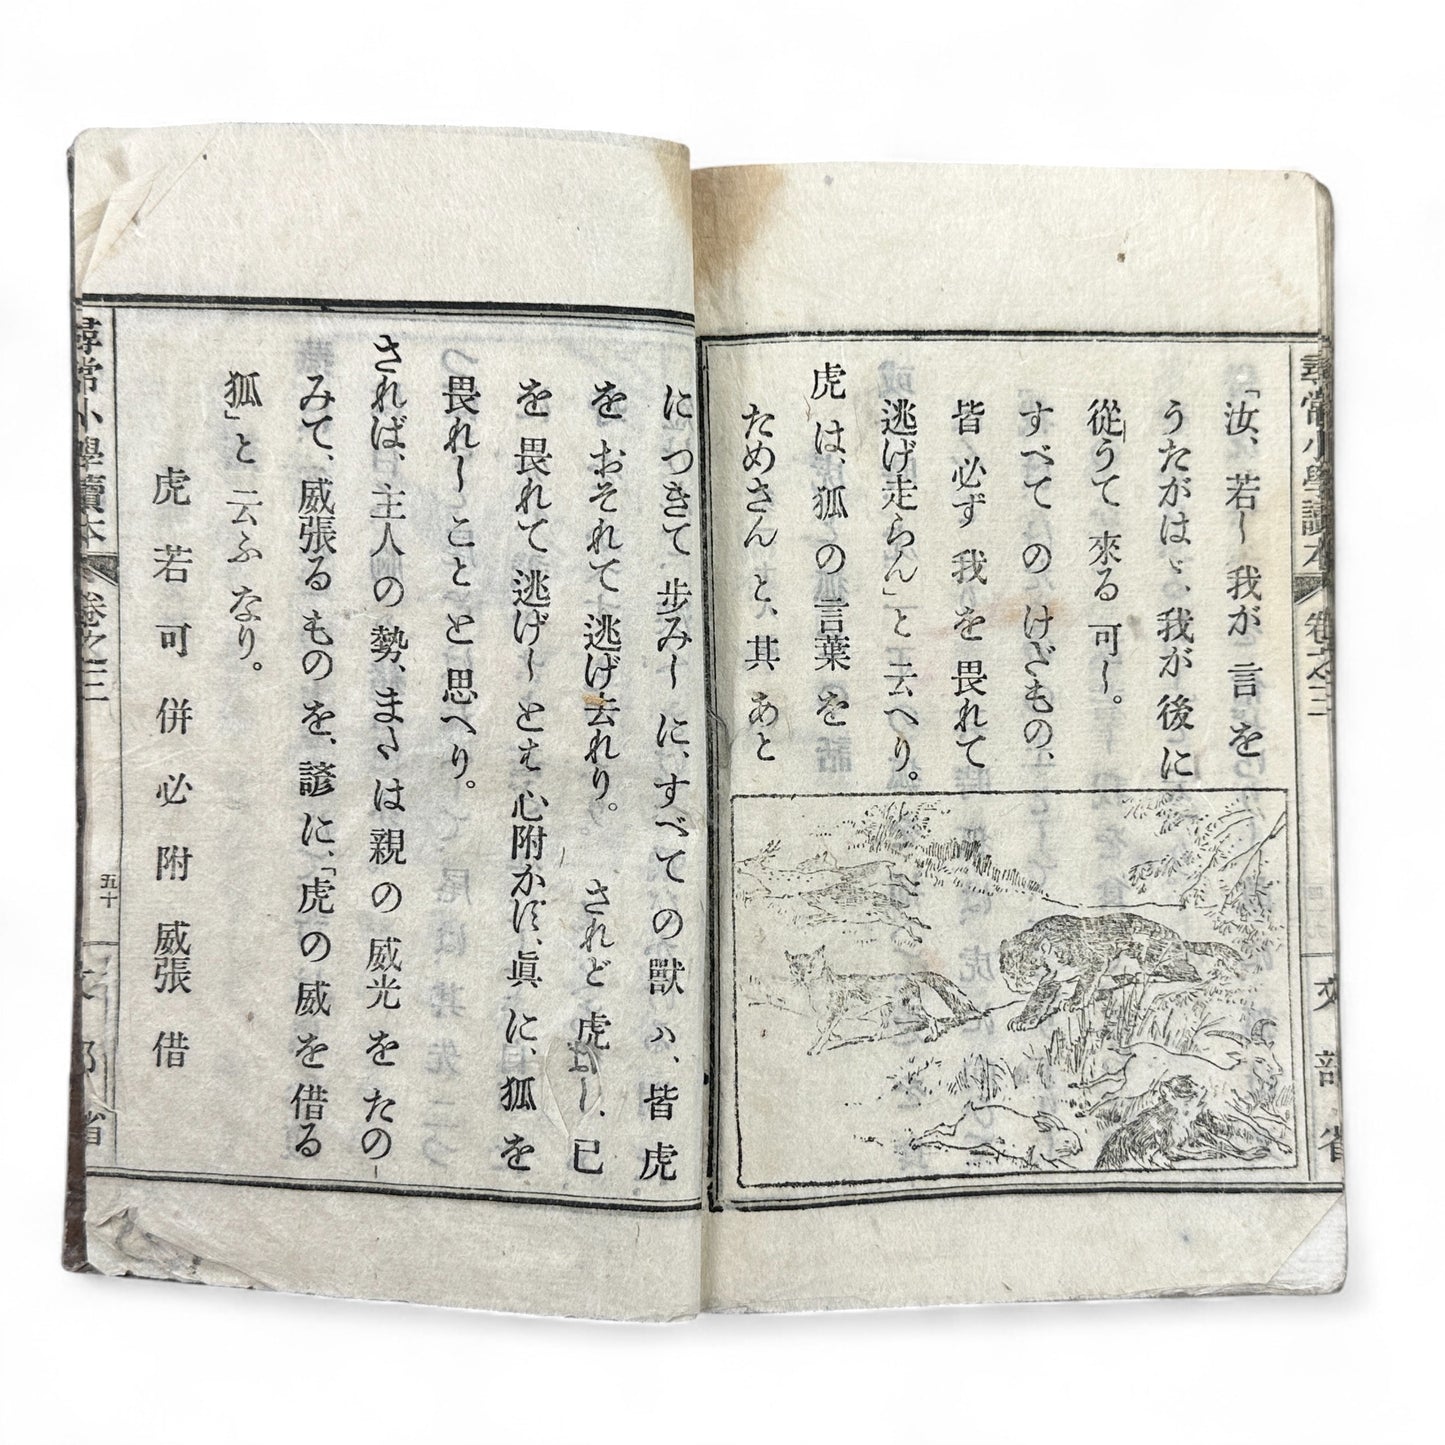 尋常小學讀本
卷之三
文部省
「汝、若し我が言を
うたがはゞ、我が後に
從うて來る可し。
すべてのけだもの、
皆必ず我を畏れて
逃げ走らん」と云へり。
虎は、狐の言葉を
ためさんと、其あと
につきて歩みしに、すべての獸ハ、皆虎
をおそれて逃げ去れり。されど虎は、已
を畏れて逃げしとも心附かず、眞に、狐を
畏れしことと思へり。
されば、主人の勢、または親の威光をたの
みて、威張るものを、諺に、「虎の威を借る
狐」と云ふなり。
虎若可併必附威張借
尋常小學讀本
卷之三
五十
文部省